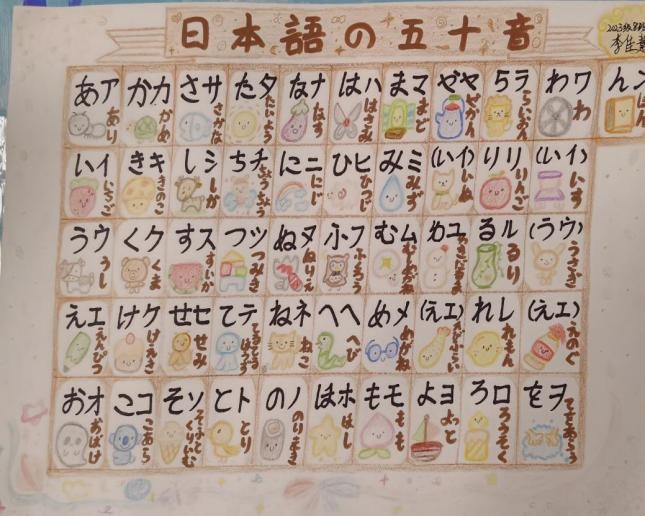 日本語の五十音
あア あり
かカ かめ
さサ さかな
たタ たいよう
なナ なす
はハ はさみ
まマ まど
やヤ やかん
らラ らいおん
わワ わ
んン ほん
いイ いちご
きキ きのこ
しシ しか
ちチ ちょうちょう
にニ にじ
ひヒ ひつじ
みミ みず
(いイ) いぬ
りリ りんご
(いイ) いす
うウ うし
くク くま
すス すいか
つツ つみき
ぬヌ ぬりえ
ふフ ふくろう
むム
ゆユ ゆきだるま
るル るり
(うウ) うさぎ
えエ えんぴつ
けケ けえき
せセ せみ
てテ てるてるぼうず
ねネ ねこ
へヘ へび
めメ めがね
(えエ)
れレ れもん
(えエ) えのぐ
おオ おばけ
こコ こあら
そソ そふとくりいむ
とト とり
のノ のりまき
ほホ ほし
もモ もも
よヨ よっと
ろロ ろうそく
をヲ てをあらう